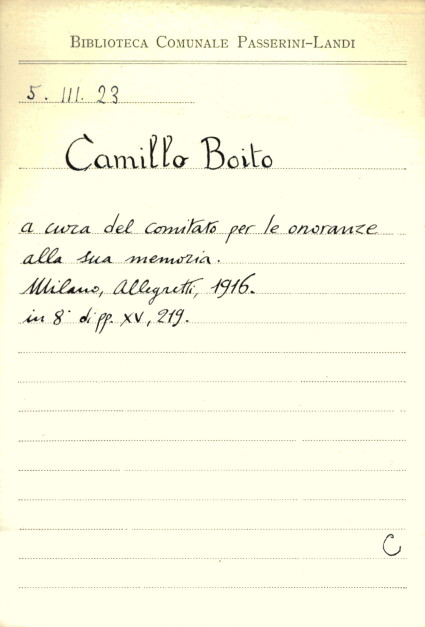 BIBLIOTECA COMUNALE PASSERINI-LANDI
5. III. 23
Camillo Boito
a cura del comitato per le onoranze
alla sua memoria.
Milano, Allegretti, 1916.
in 8° di pp. XV, 219.
C